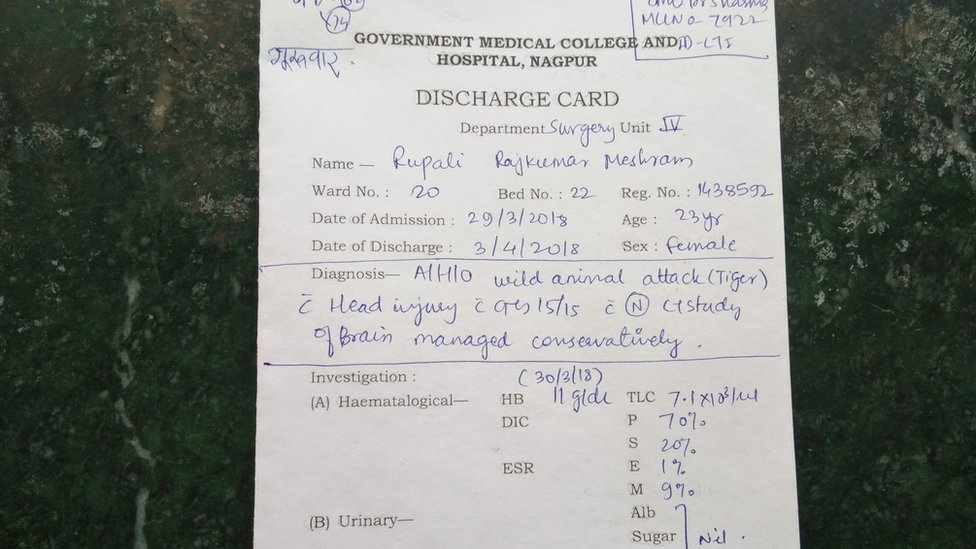 MLC No 7922
GOVERNMENT MEDICAL COLLEGE AND
HOSPITAL, NAGPUR
DISCHARGE CARD
Department Surgery Unit IV
Name — Rupali Rajkumar Meshram
Ward No. : 20 Bed No. : 22 Reg. No. : 1438592
Date of Admission : 29/3/2018 Age : 23yr
Date of Discharge : 3/4/2018 Sex : female
Diagnosis— A/H/O wild animal attack (Tiger)
c̄ Head injury c̄ GCS 15/15 c̄ Ⓝ CT study
of Brain managed conservatively .
Investigation : (30/3/18)
(A) Haematalogical— HB 11 g/dl TLC 7.1×10³/ul
DIC P 70%
S 20%
ESR E 1%
M 9%
(B) Urinary— Alb
Sugar Nil .